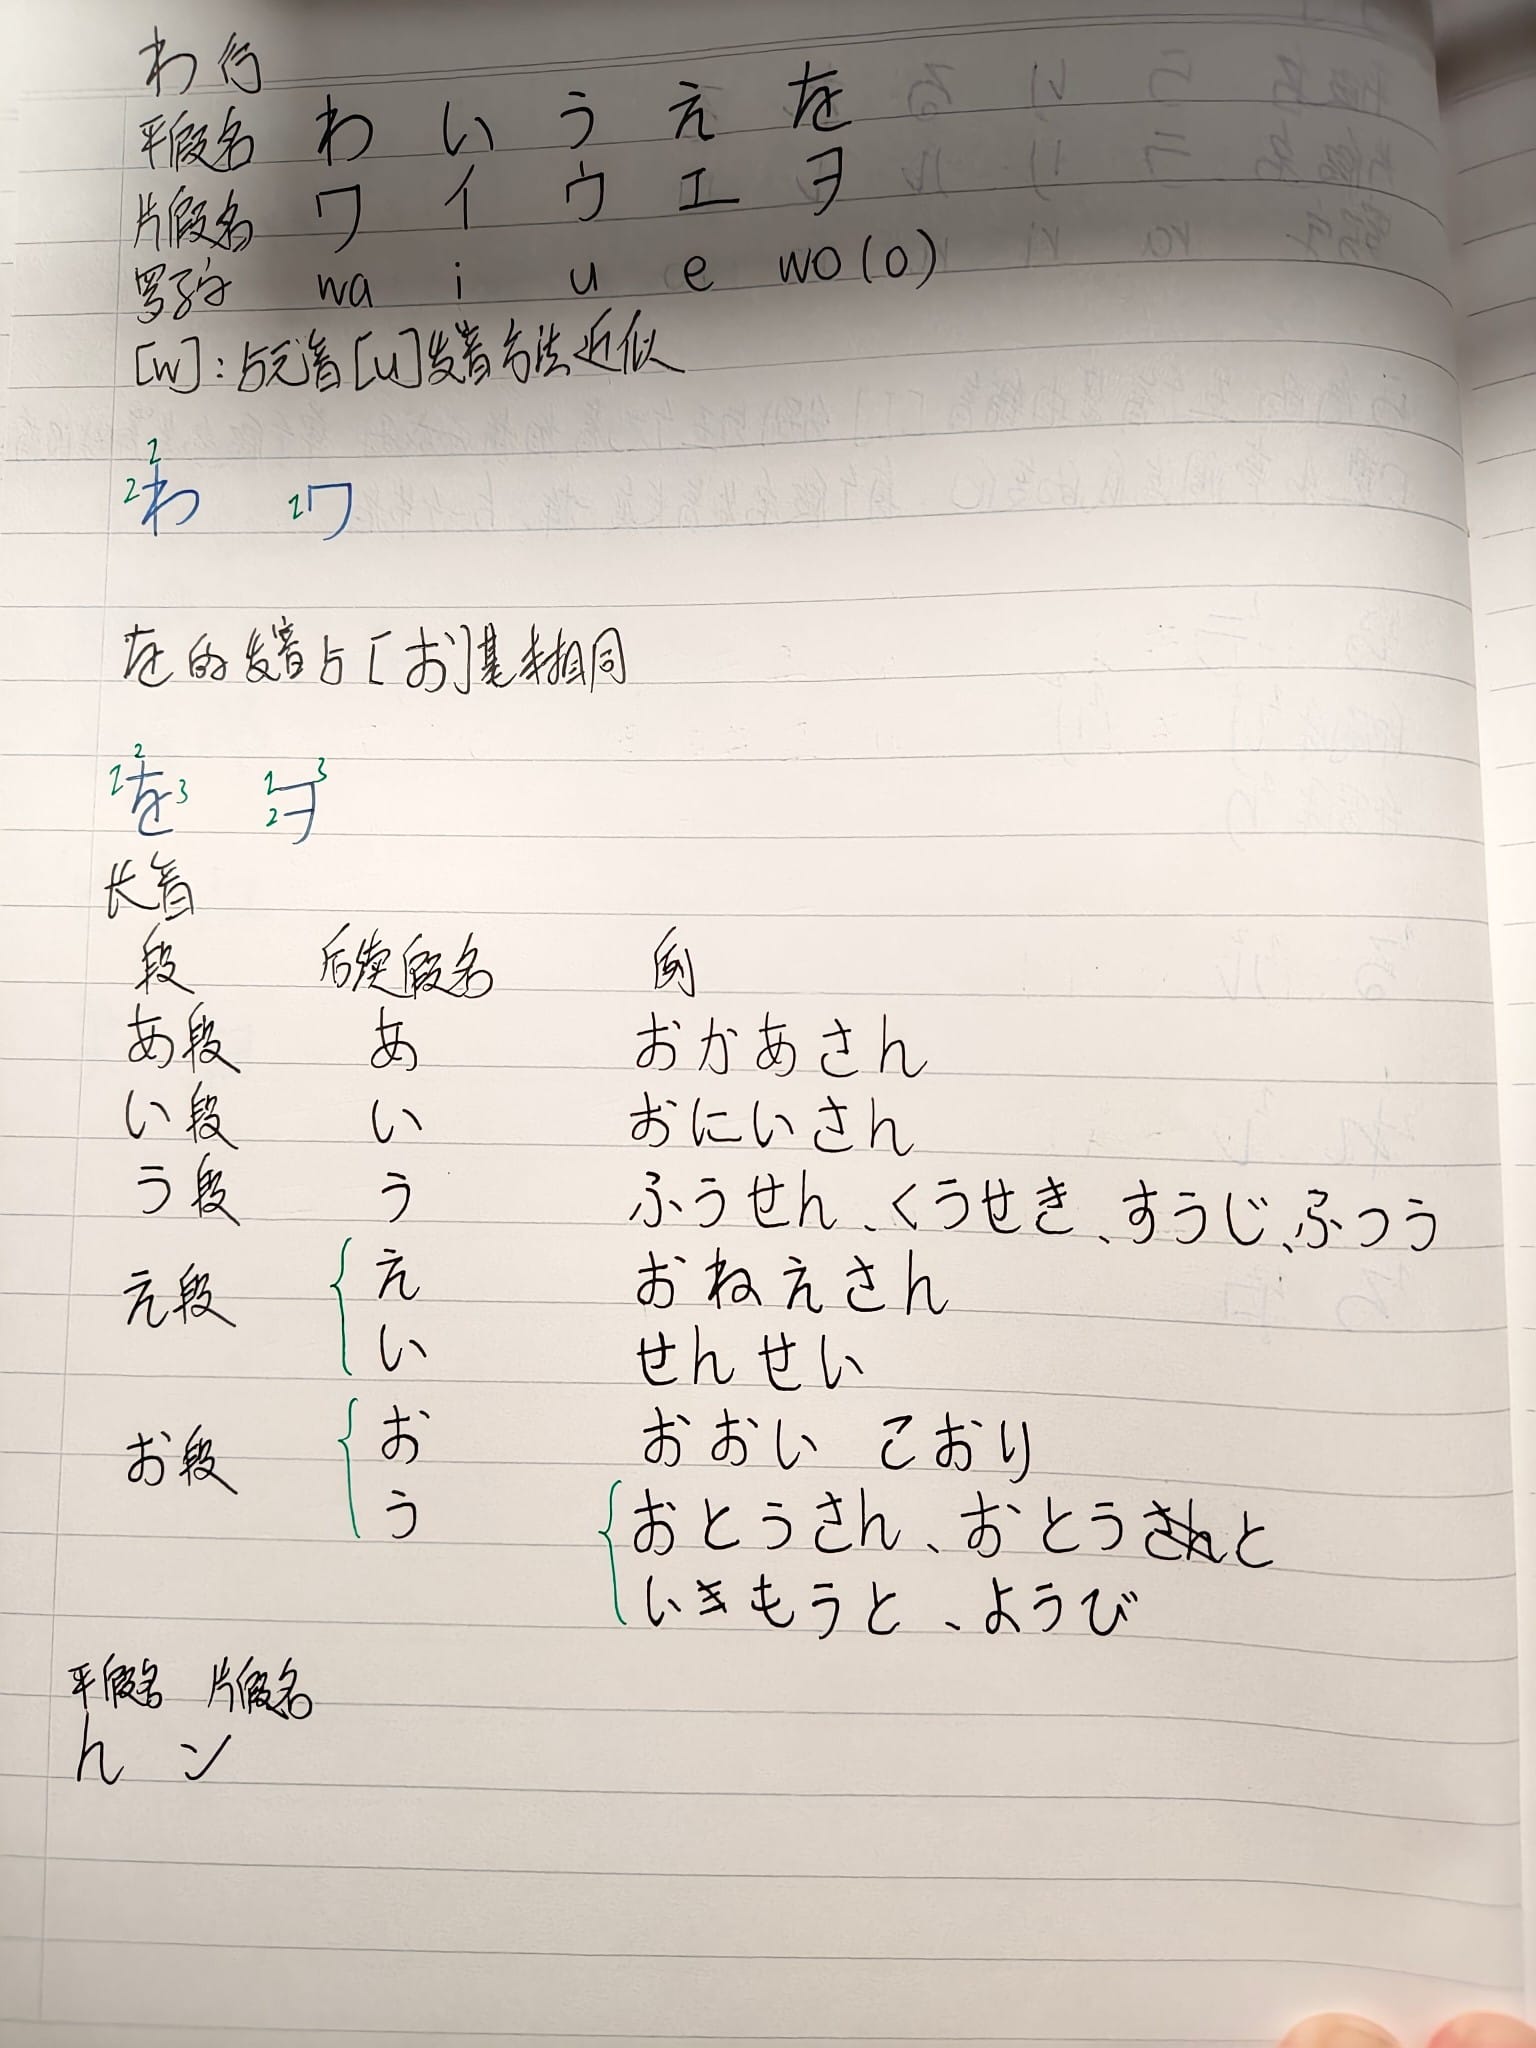 わ行
平假名 わ い う え を
片假名 ワ イ ウ エ ヲ
罗马字 wa i u e wo(o)
[w]:与元音[u]发音方法近似
2 2 わ 1 ワ
を的发音与[お]基本相同
1 2 を 3 1 2 ヲ 3
长音
段 后续假名 例
あ段 あ おかあさん
い段 い おにいさん
う段 う ふうせん、くうせき、すうじ、ふつう
え段 え おねえさん
い せんせい
お段 お おおい こおり
う おとうさん、おとうと
いもうと、ようび
平假名 片假名
ん ン